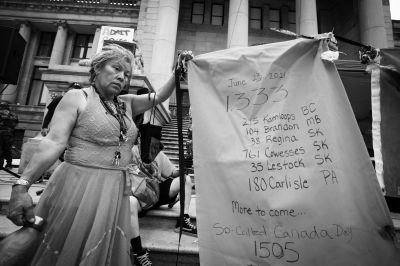 June 25 2021
1333
215 Kamloops BC
104 Brandon MB
38 Regina SK
761 Cowesses SK
35 Lestock SK
180 Carlisle PA
More to come...
So-Called Canada Day
1505